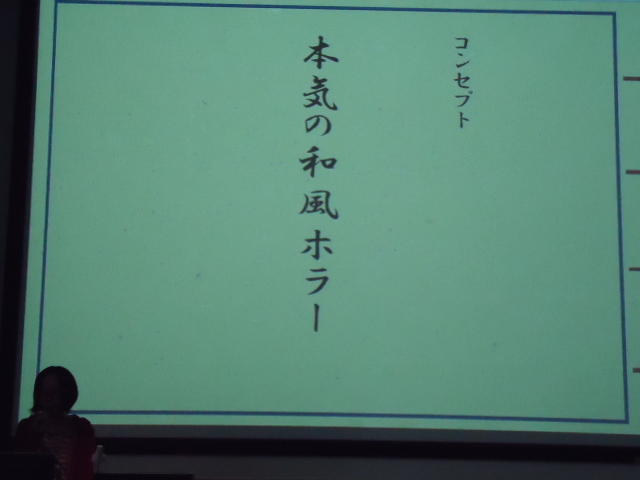 コンセプト
本気の和風ホラー